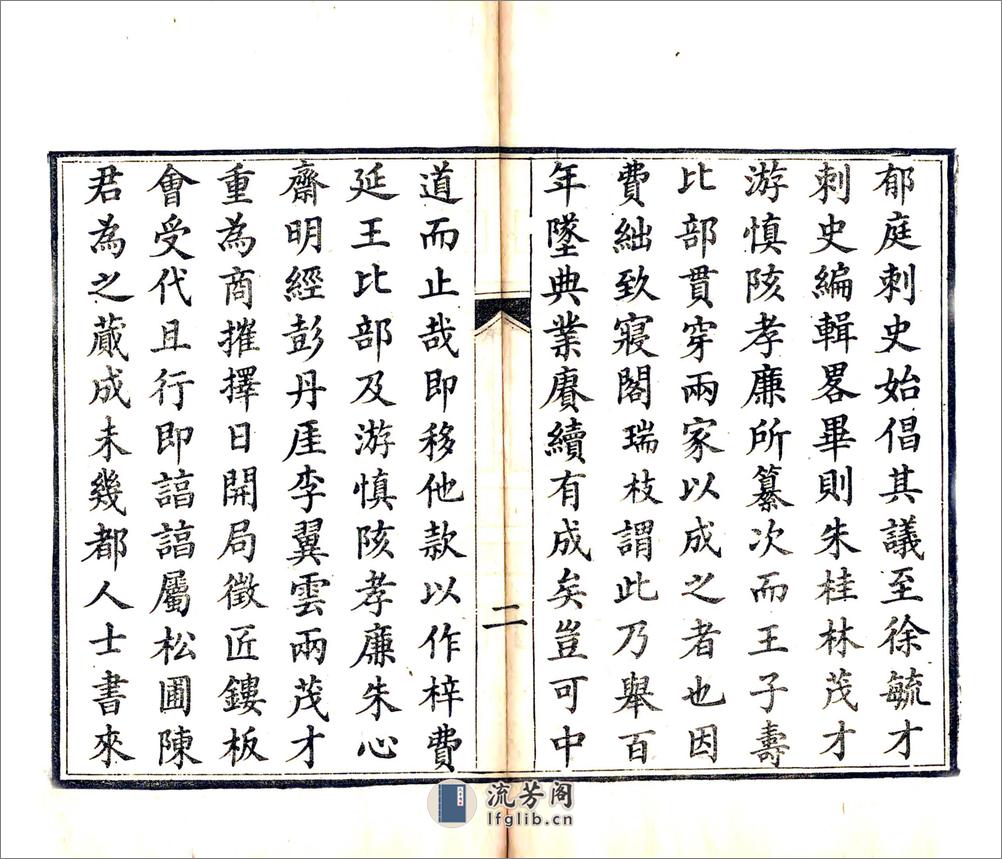 郁庭刺史始倡其議至徐毓才
刺史編輯畧畢則朱桂林茂才
游慎陔孝廉所纂次而王子壽
比部貫穿兩家以成之者也因
費絀致寢閣瑞枝謂此乃舉百
年墜典業賡續有成矣豈可中
二
道而止哉即移他款以作梓費
延王比部及游慎陔孝廉朱心
齋明經彭丹厓李翼雲兩茂才
重為商摧擇日開局徵匠鏤板
會受代且行即諄諄屬松圃陳
君為之蕆成未幾都人士書來
流芳阁
lfglib.cn